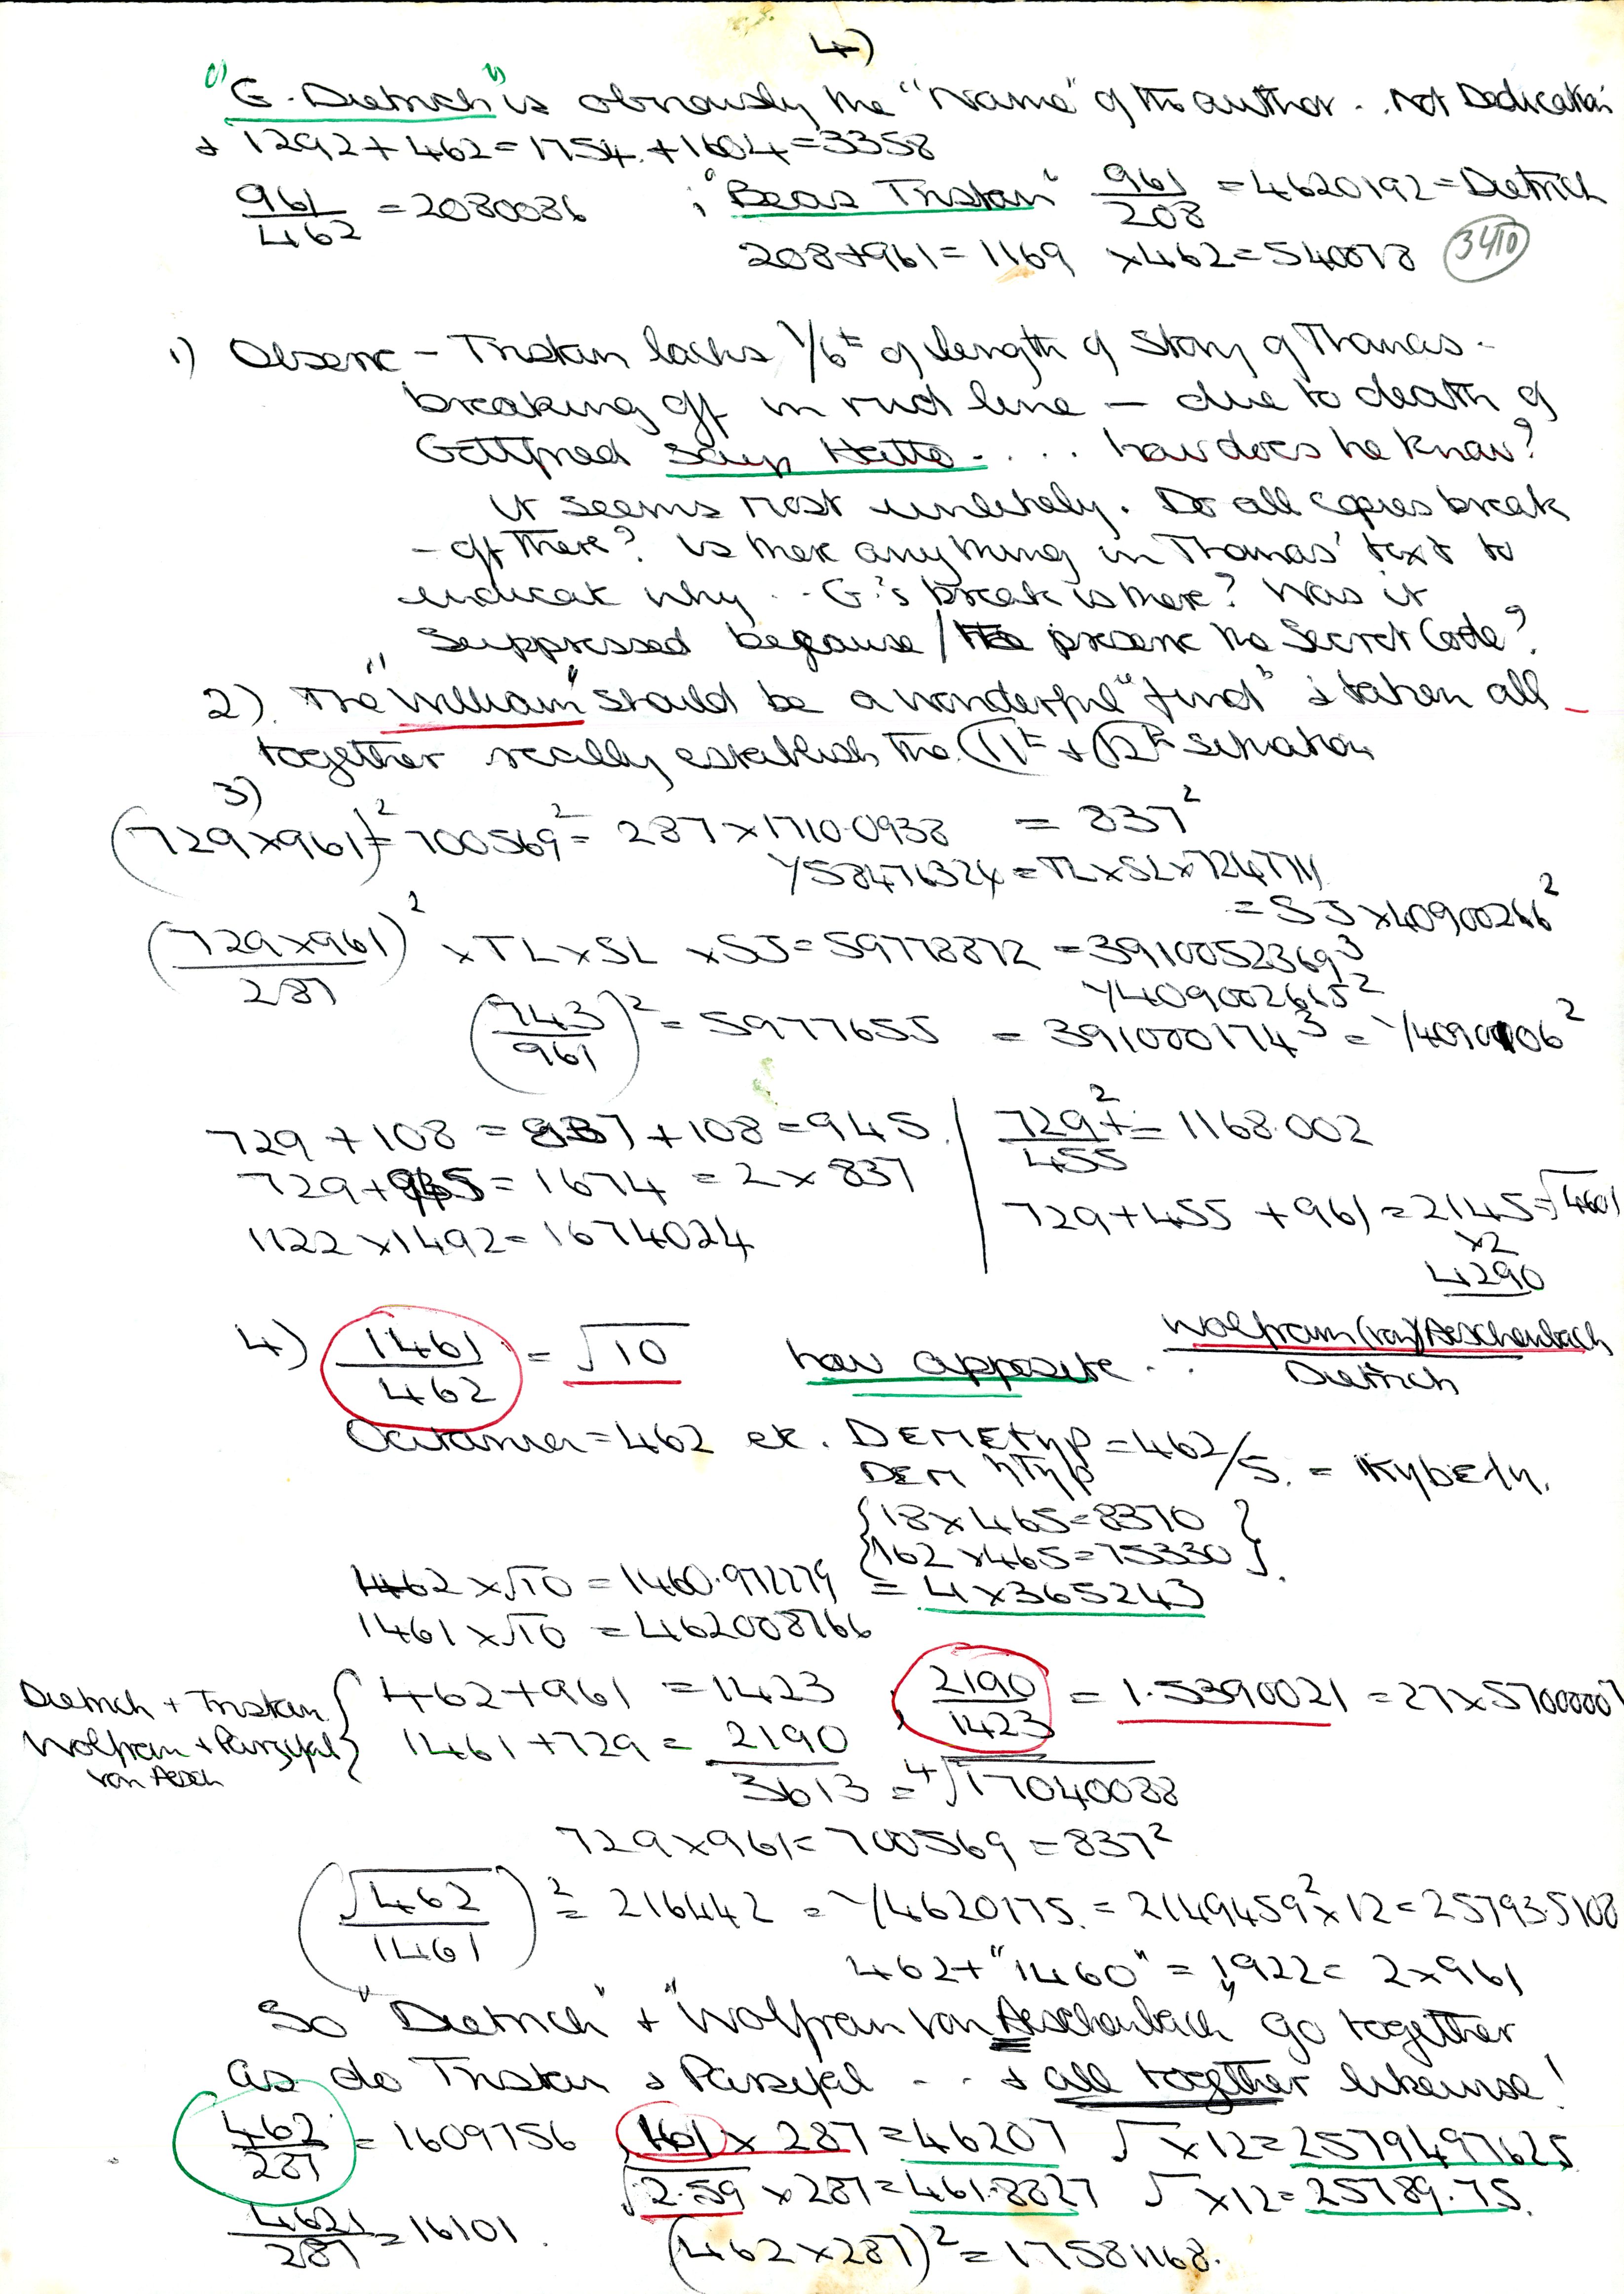 4)
"G. Dietrich" is obviously the "Name" of the author .. Not Dedication
& 1292 + 462 = 1754. + 1604 = 3358
961/462 = 2080086 ; "Beas Tristan" 961/208 = 4620192 = Dietrich
208 + 961 = 1169 × 462 = 540078 3410
1) Observe – Tristan lacks 1/6th of length of Story of Thomas -
breaking off in mid line – due to death of
Gottfried says Hatto .... how does he know?
It seems most unlikely. Do all copies break
– off there? Is there anything in Thomas' text to
indicate why .. G's break is there? Was it
Suppressed because / to preserve the Secret Code?
2). The "William" should be a wonderful "find" & taken all –
together really establish the 11th & 12th situation
3)
(729 × 961)² = 700569² = 287 × 1710.0938 = 837²
1/58476324 = TL × SL × 724771
= SJ × 40900266²
(729 × 961 / 287)² × TL × SL × SJ = 59778872 = 3910052369³
1/4090026615²
(743/961)² = 5977655 = 391000174³ = 1/4090106²
729 + 108 = 837 + 108 = 945.
729² ÷ 455 = 1168.002
729 + 945 = 1674 = 2 × 837
729 + 455 + 961 = 2145 = √4601
1122 × 1492 = 1674024
×2
4290
4) 1461/462 = √10 how apposite .. Wolfram (von) Aeschenbach / Dietrich
= 462 etc. DEMETYP = 462/5. = KYBEλη.
DEM ηTYP
{18 × 465 = 8370}
{162 × 465 = 75330}.
462 × √10 = 1460.972279 = 4 × 365243
1461 × √10 = 462008766
Dietrich + Tristan { 462 + 961 = 1423 , 2190/1423 = 1.5390021 = 27 × 5700007
Wolfram + Parzifal } 1461 + 729 = 2190
von Aesch
3613 = ⁴√17040088
729 × 961 = 700569 = 837²
(√462/1461)² = 216442 = 1/4620175. = 2149459² × 12 = 25793.5108
462 + "1460" = 1922 = 2 × 961
So "Dietrich" & "Wolfram von Aeschenbach" go together
as do Tristan & Parzifal ... & all together likewise!
462/287 = 1609756 161 × 287 = 46207 √ × 12 = 2579497625
√2.59 × 287 = 461.8827 √ × 12 = 25789.75.
4621/287 = 16101. (462 × 287)² = 17581168.